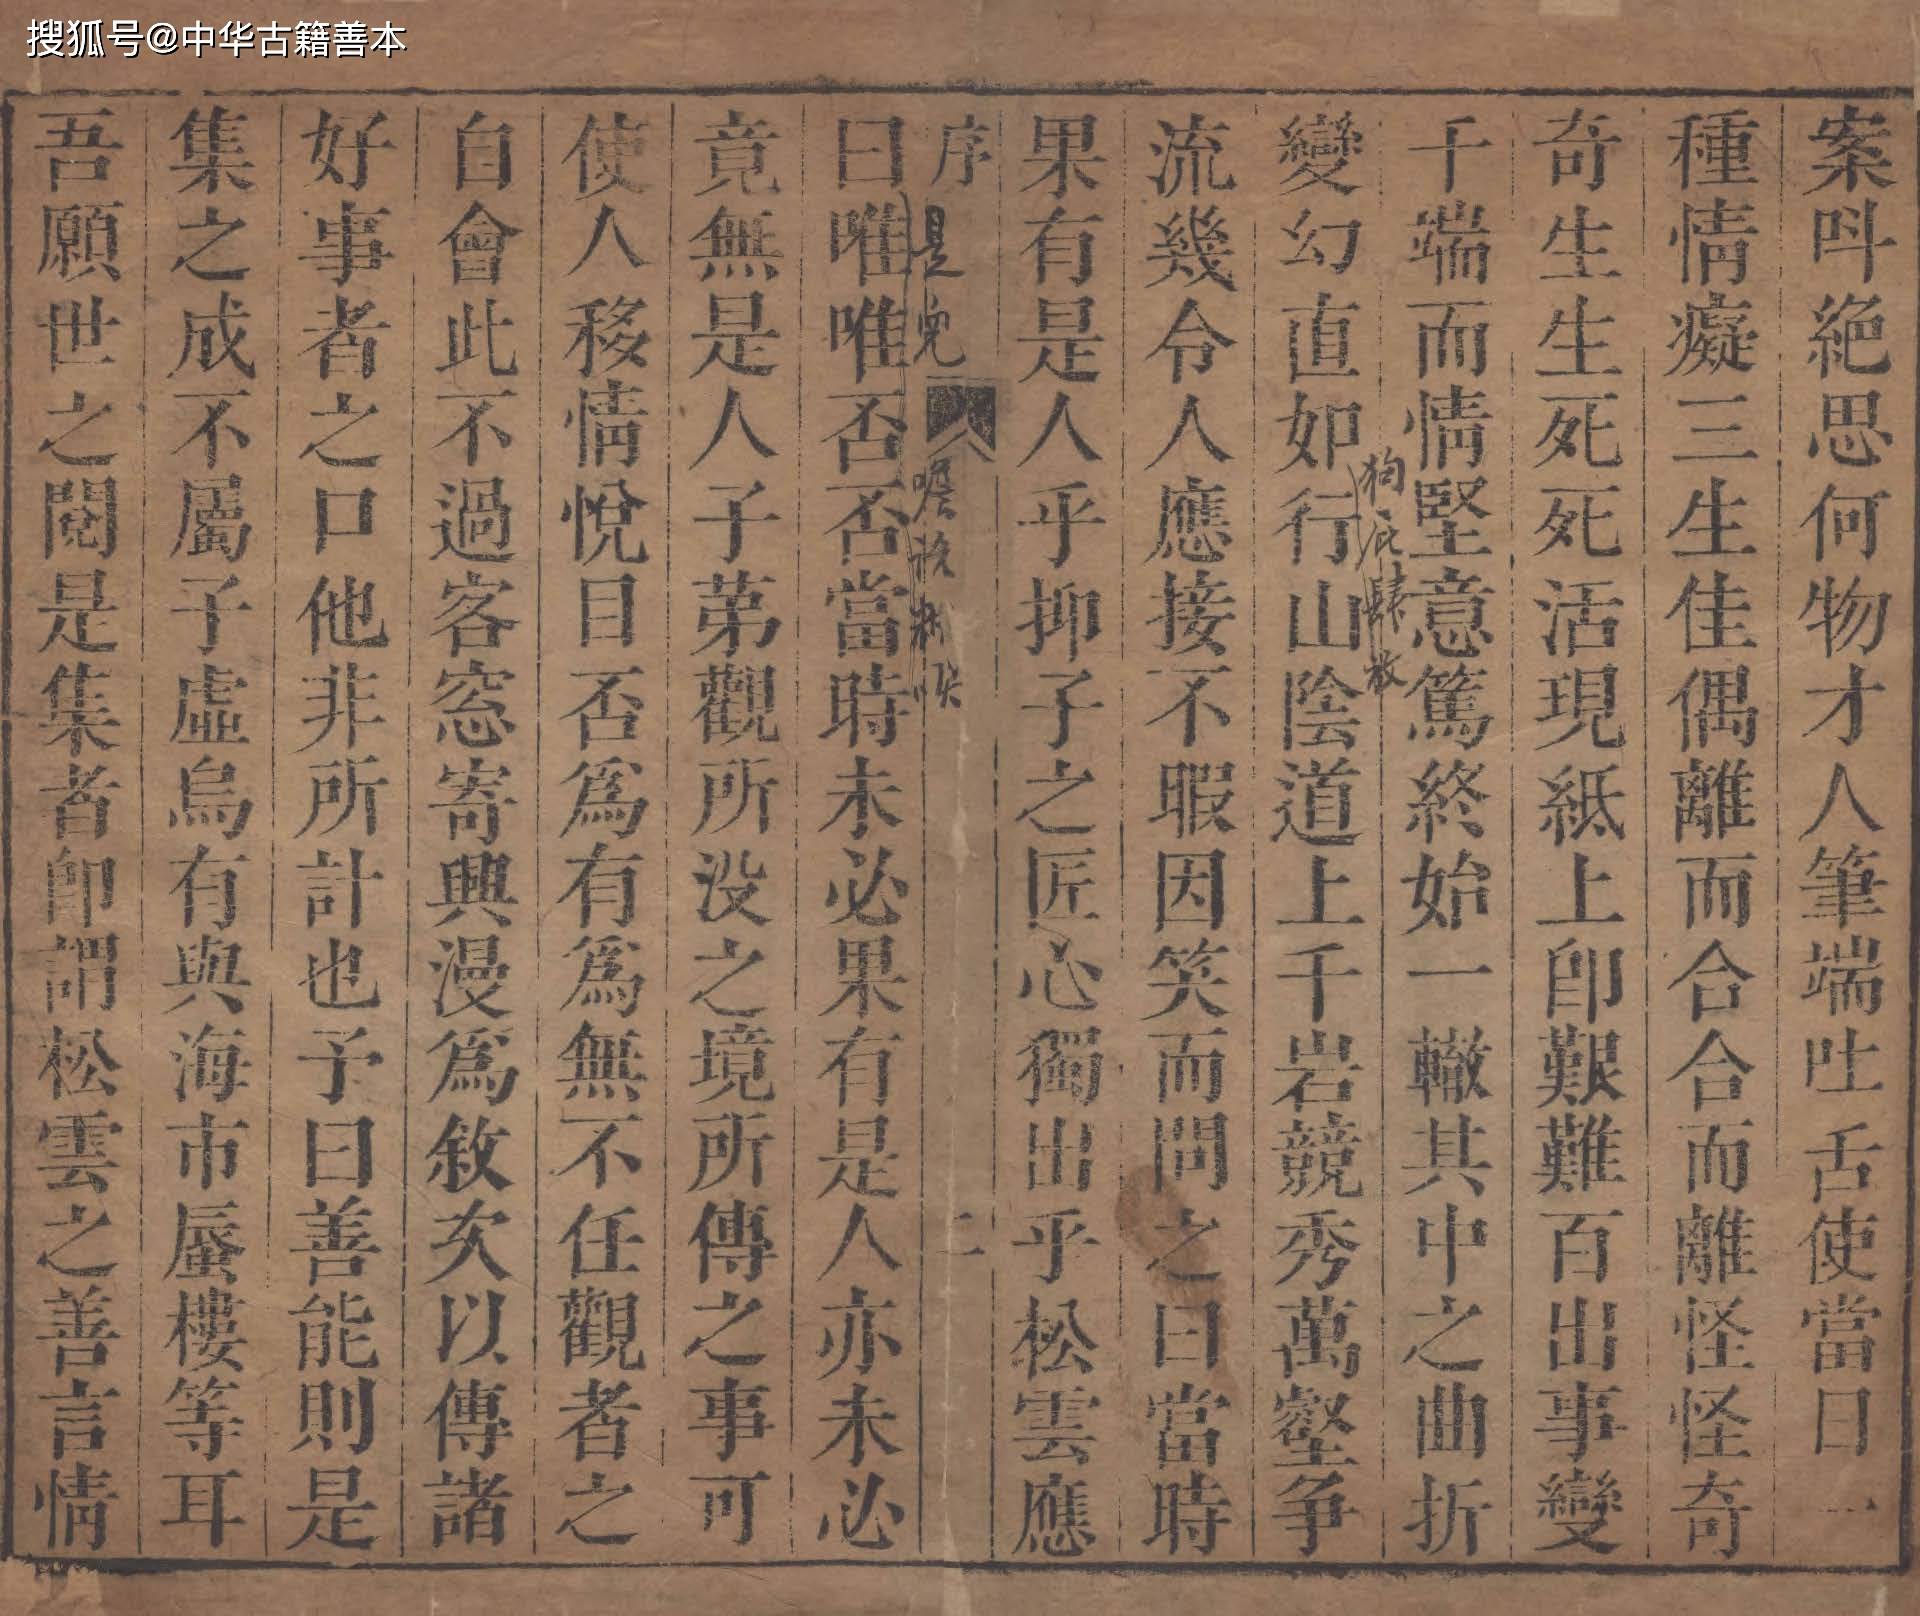 搜狐号@中华古籍善本
案呌絶思何物才人筆端吐舌使當日一
種情癡三生佳偶離而合合而離怪怪奇
奇生生死死活現紙上卽艱難百出事變
千端而情堅意篤終始一轍其中之曲折
變幻直如行山陰道上千岩競秀萬壑争
流幾令人應接不暇因笑而問之曰當時
果有是人乎抑子之匠心獨出乎松雲應
序 二
曰唯唯否否當時未必果有是人亦未必
竟無是人子苐觀所没之境所傳之事可
使人移情悅目否爲有爲無不任觀者之
自會此不過客窓寄興漫爲敘次以傳諸
好事者之口他非所計也予曰善能則是
集之成不屬子虛烏有與海市蜃樓等耳
吾願世之閱是集者卽謂松雲之善言情